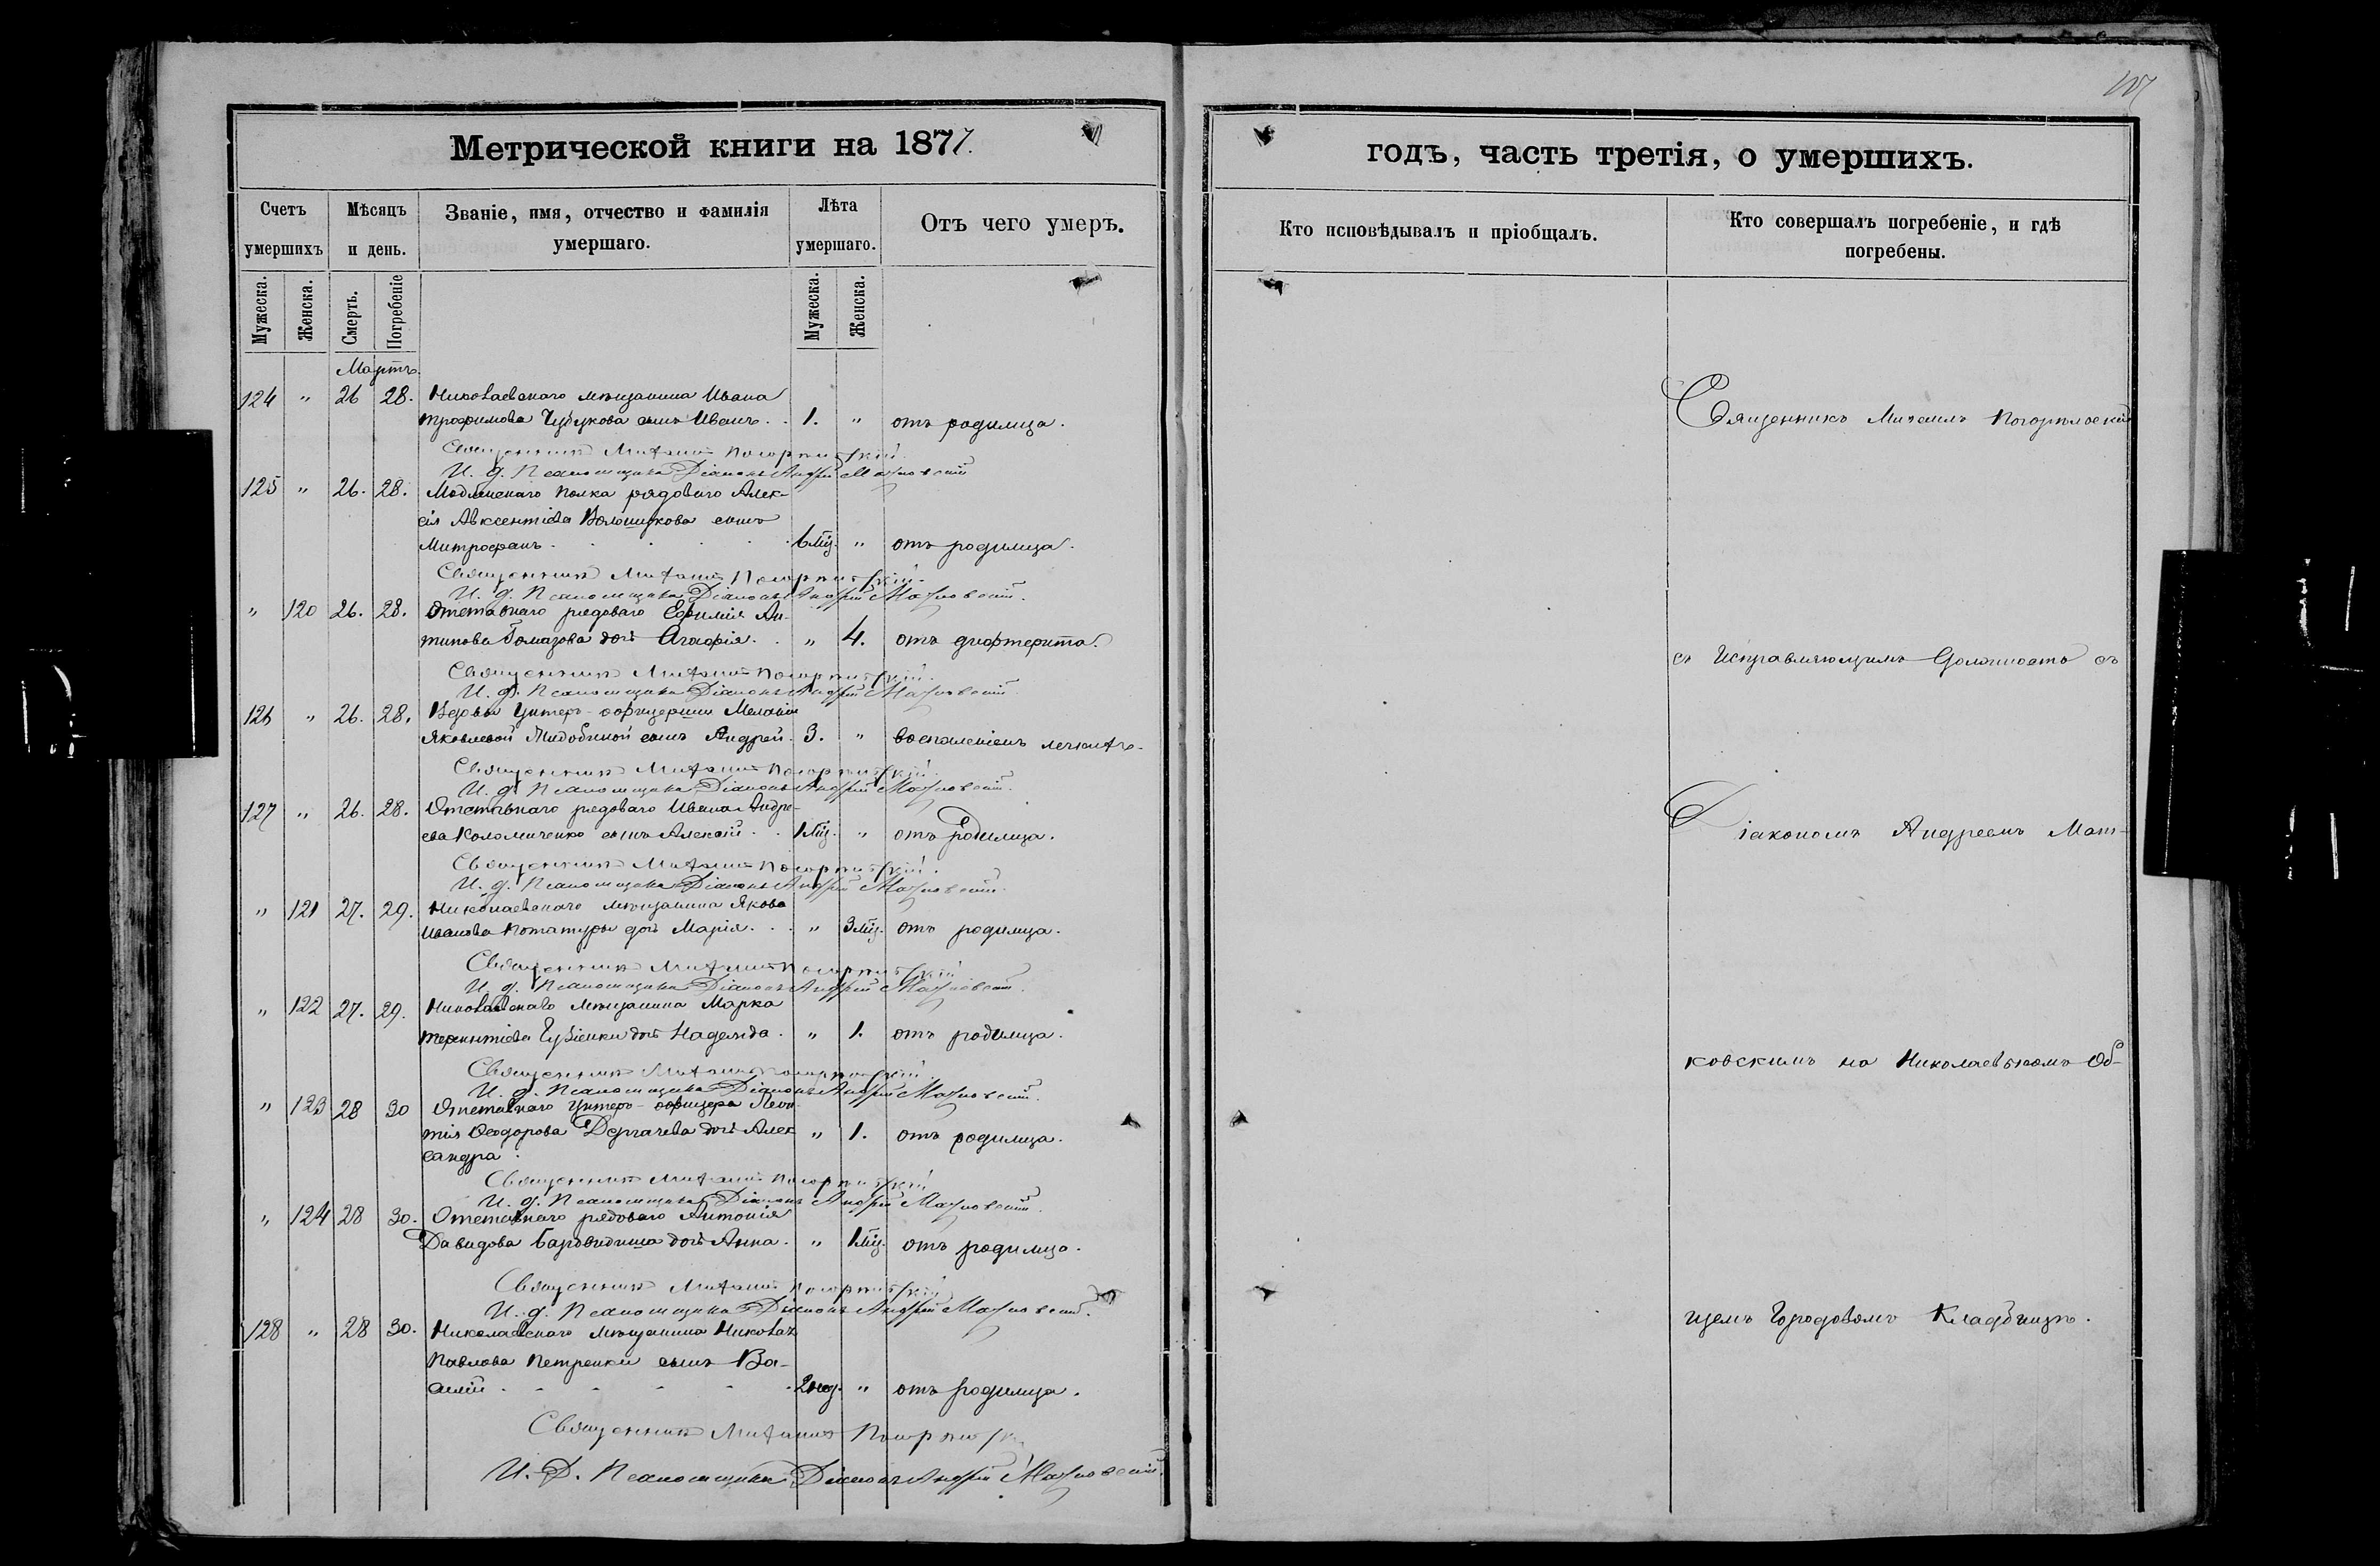 107
Метрической книги на 1877.
годъ, часть третія, о умершихъ.
Счетъ умершихъ
Мѣсяцъ и день.
Званіе, имя, отчество и фамилія умершаго.
Лѣта умершаго.
Отъ чего умеръ.
Кто исповѣдывалъ и пріобщалъ.
Кто совершалъ погребеніе, и гдѣ погребены.
Мужеска. Женска. Смерть. Погребеніе Мужеска. Женска.
Мартъ.
124 " 26 28. Николаевскаго мѣщанина Ивана
Трофимова Чубукова сынъ Иванъ. . 1. " отъ родимца.
Священникъ Михаилъ Погорѣльскій.
И. д. Псаломщика Діаконъ Андрей
125 " 26. 28. Модлинскаго полка рядоваго Алек-
сія Авксентіева Волошукова сынъ
Митрофанъ . . . . . 6 мѣц. " отъ родимца.
Священникъ Михаилъ Погорѣльскій.
И. д. Псаломщика Діаконъ Андрей
" 120 26. 28. Отставнаго рядоваго Ефимія Ан-
типова дочь Агафія. . " 4. отъ дифтерита.
Священникъ Михаилъ Погорѣльскій.
И. д. Псаломщика Діаконъ Андрей
126 " 26. 28. Вдовы Унтеръ-офицерши Меланіи
Яковлевой сынъ Андрей. 3. " воспаленіемъ легкихъ.
Священникъ Михаилъ Погорѣльскій.
И. д. Псаломщика Діаконъ Андрей
127 " 26. 28. Отставнаго рядоваго Ивана Андре-
ева Коломиченко сынъ Алексій . . 1 мѣц. " отъ родимца.
Священникъ Михаилъ Погорѣльскій.
И. д. Псаломщика Діаконъ Андрей
" 121 27. 29. Николаевскаго мѣщанина Якова
Иванова Потатуры дочь Марія. . . " 3 мѣц. отъ родимца.
Священникъ Михаилъ Погорѣльскій
И. д. Псаломщика Діаконъ Андрей
" 122 27. 29. Николаевскаго мѣщанина Марка
Терентіева дочь Надежда. " 1. отъ родимца.
Священникъ Михаилъ Погорѣльскій.
И. д. Псаломщика Діаконъ Андрей
" 123 28 30 Отставнаго Унтеръ-офицера Леон-
тія Ѳеодорова Дергачева дочь Алек
сандра. " 1. отъ родимца.
Священникъ Михаилъ Погорѣльскій
И. д. Псаломщика Діаконъ Андрей
" 124 28 30. Отставнаго рядоваго Антонія
Давидова дочь Анна. " 1 мѣц. отъ родимца.
Священникъ Михаилъ Погорѣльскій
И. д. Псаломщика Діаконъ Андрей
128 " 28 30. Николаевскаго мѣщанина Николая
Павлова Петренки сынъ Ва-
силій . . . . . 2 нед. " отъ родимца.
Священникъ Михаилъ
И. Д. Псаломщика Діаконъ Андрей
Священникъ Михаилъ Погорѣльскій
съ Исправляющимъ Должность
Діакономъ Андреемъ
ковскимъ на Николаевскомъ Об-
щемъ Городовомъ Кладбищѣ.